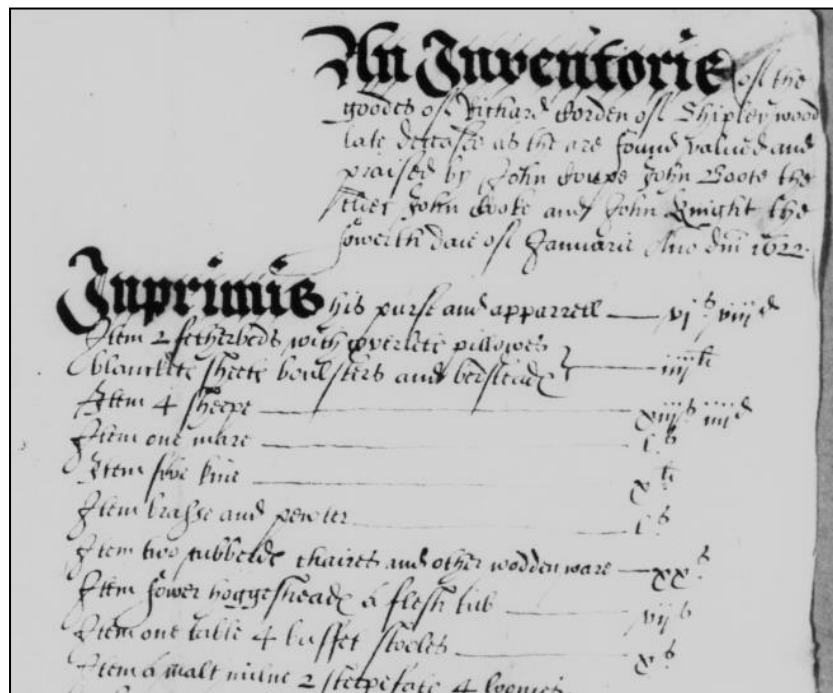 An Inventorie of the
goodes of Richard Gorden of Shipley wood
late decease as the are found valued and
praised by John Roupe John Goote the
elder John Cooke and John Knight the
fowerth daie of Januarie Ano dm 1622
Inprimis his purse and apparrell vjs viijd
Item 2 fetherbeds with coverlets pillowes
blanckets sheets boulsters and bedsteads iiijli
Item 4 sheepe xiijs iiijd
Item one mare ls
Item five kine xli
Item brasse and pewter ls
Item two chaires and other wodden ware xxs
Item fower hoggesheads a flesh tub vijs
Item one table 4 buffet stooles xs
Item a malt milne 2 steepefats 4 loomes